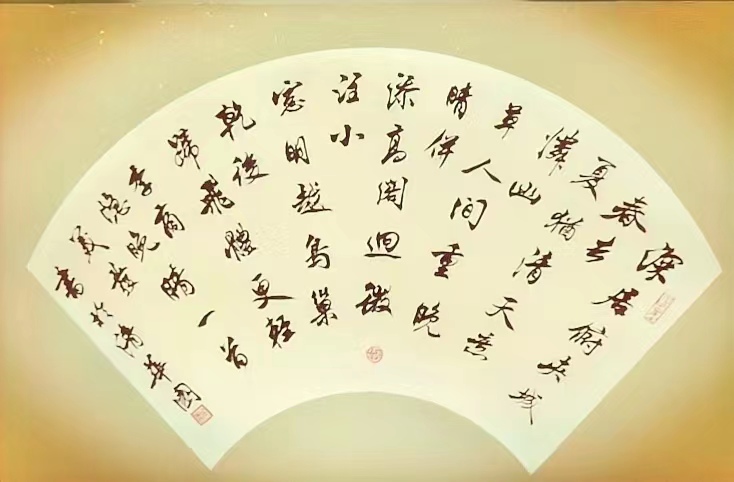 深居俯夾城
春去
夏猶清天意
憐幽
草人間重晚
晴併
添高閣迴微
注小
窗明越鳥巢
乾後
歸飛體更輕
李商
隱晚晴一首
書於清華園